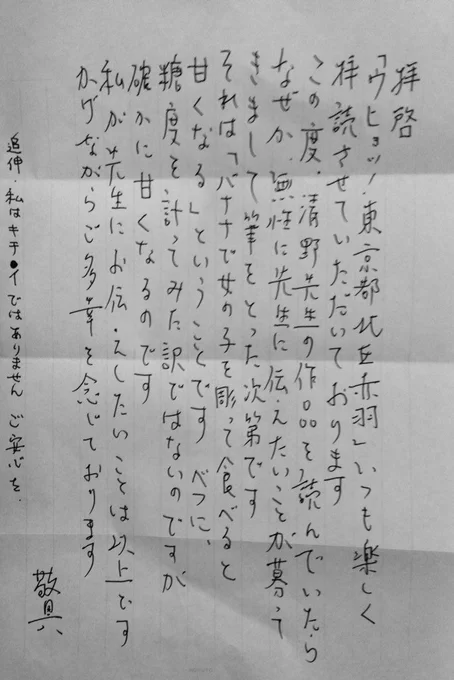 拝啓
「ウヒョッ!東京都北区赤羽」いつも楽しく
拝読させていただいております
この度、清野先生の作品を読んでいたら
なぜか、無性に先生に伝えたいことが募って
きまして筆をとった次第です
それは「バナナで女の子を彫って食べると
甘くなる」ということです べつに、
糖度を計ってみた訳ではないのですが
確かに甘くなるのです
私が先生にお伝えしたいことは以上です
かげながらご多幸を念じております
敬具
追伸・私はキチ●イではありません ご安心を。